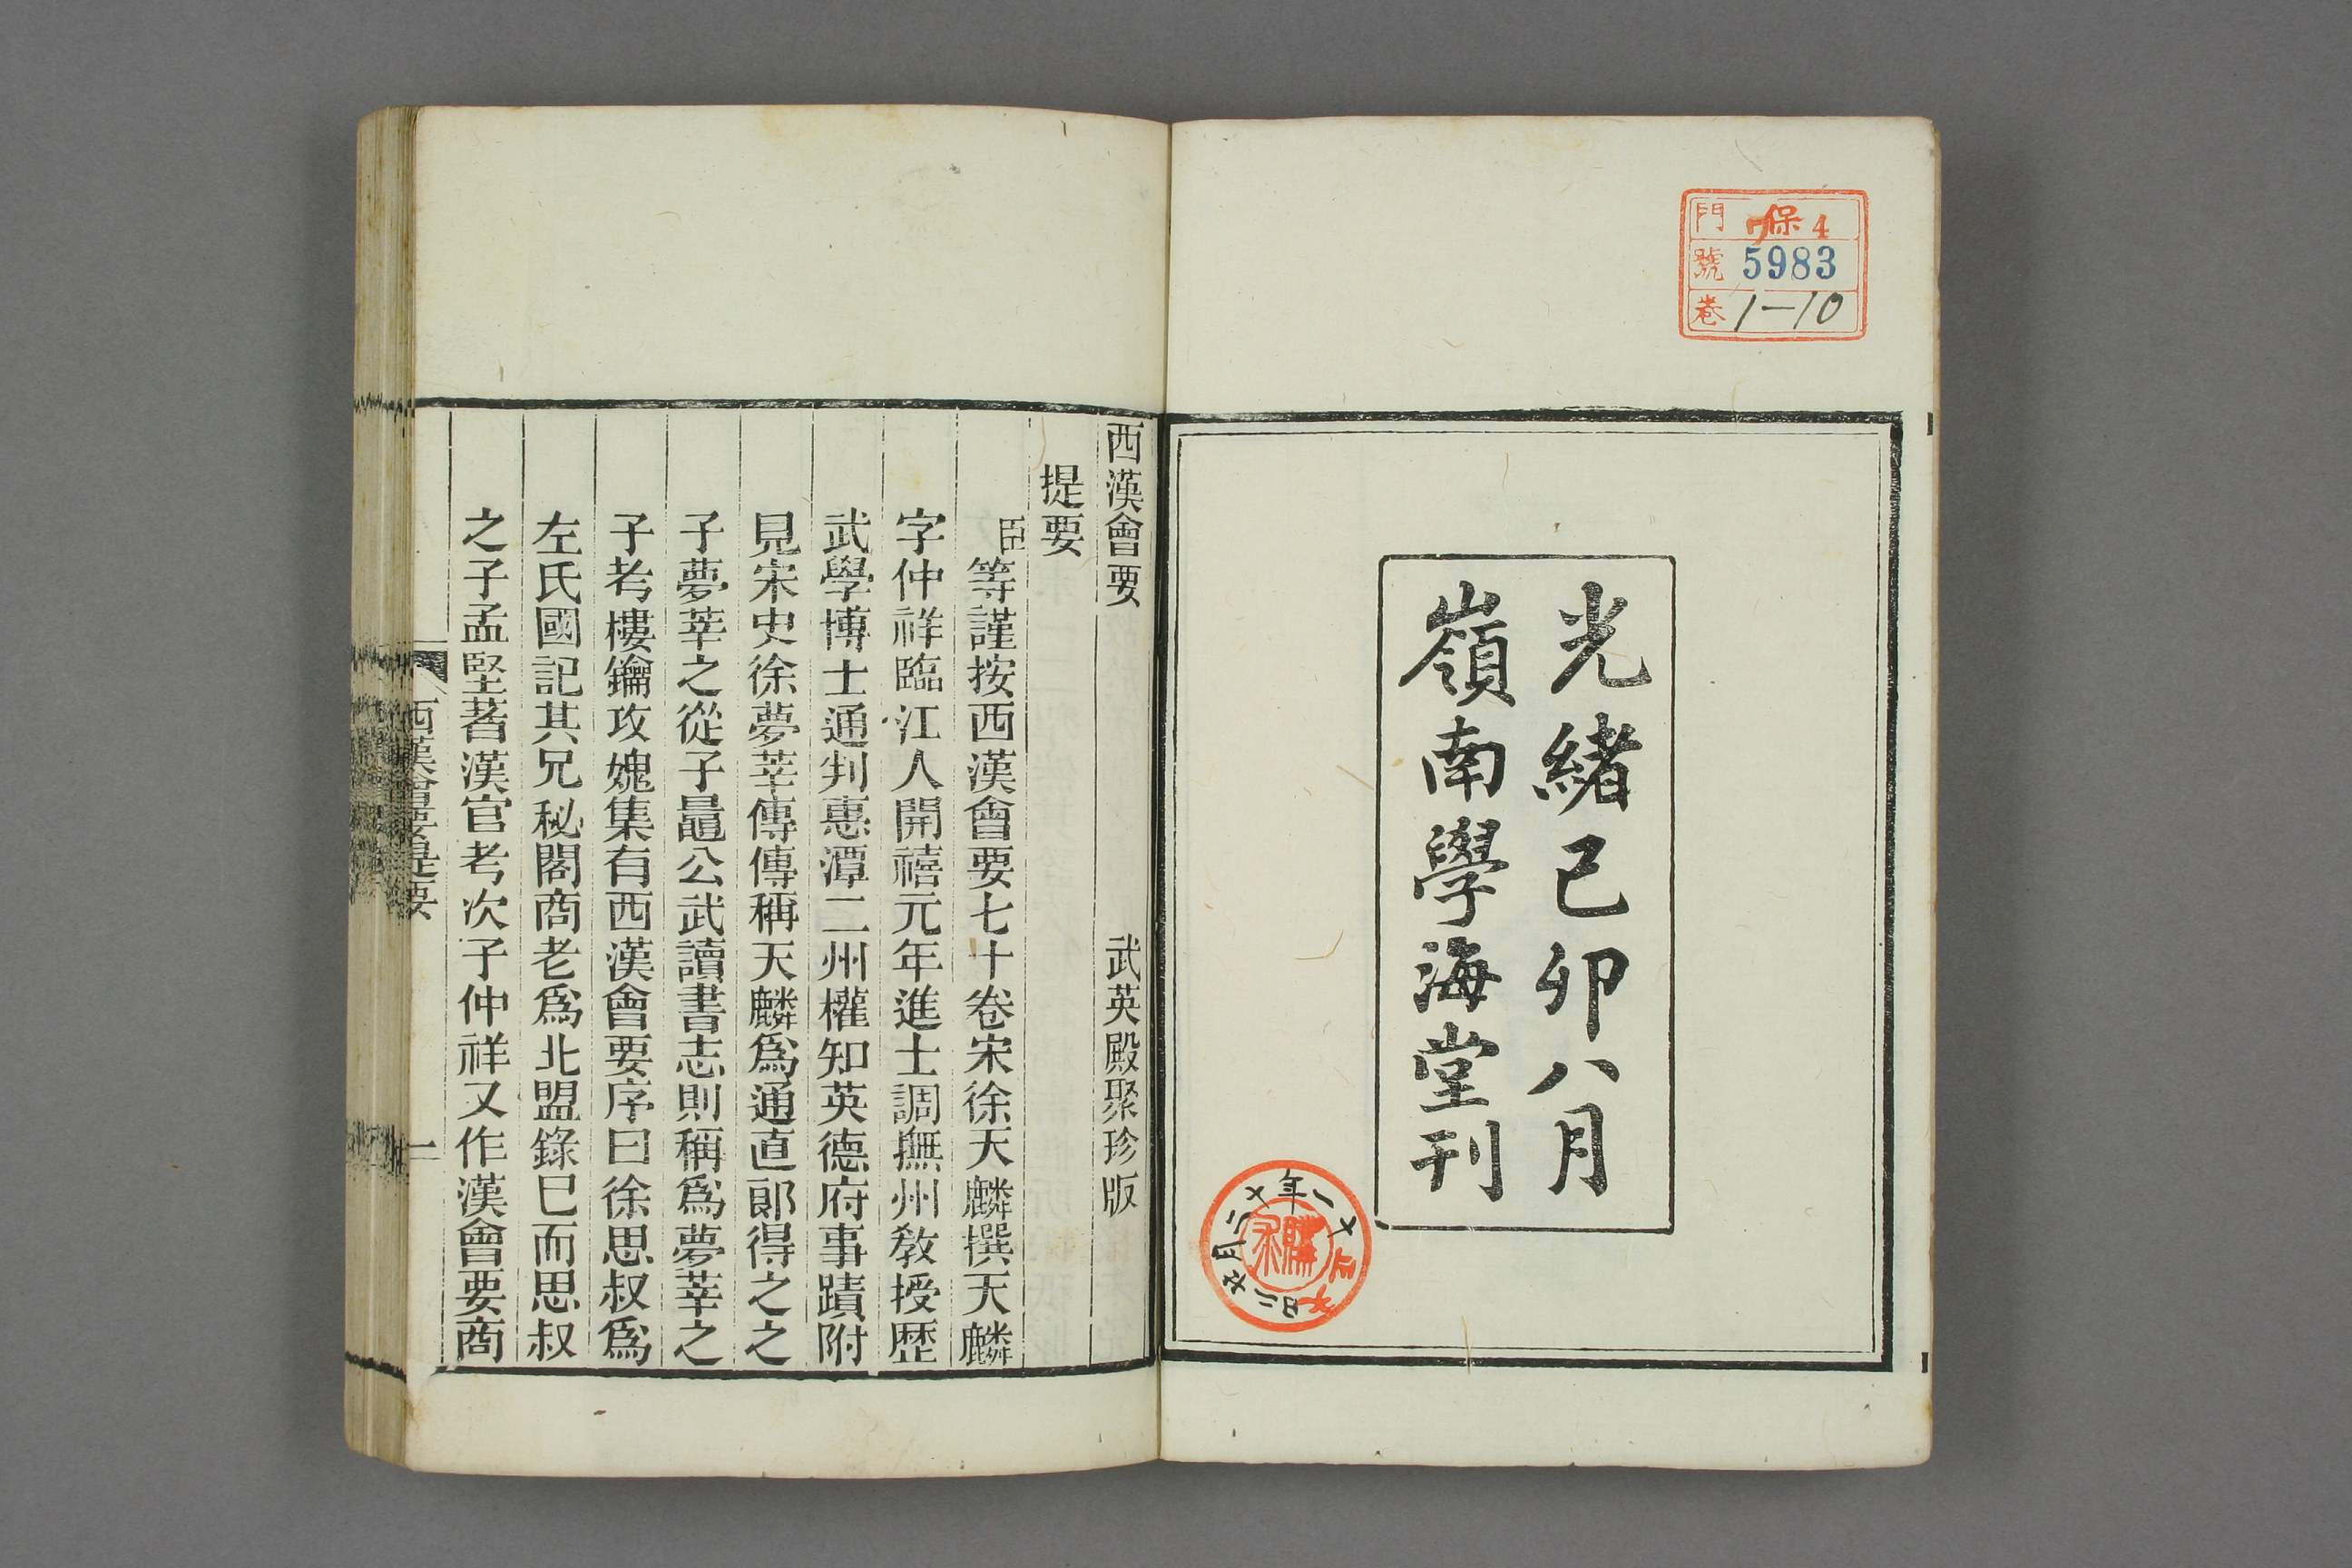 門 保 4
號 5983
卷 1—10
光緒己卯八月
嶺南學海堂刊
西漢會要 武英殿聚珍版
提要
臣等謹按西漢會要七十卷宋徐天麟撰天麟
字仲祥臨江人開禧元年進士調撫州敎授歷
武學博士通判惠潭二州權知英德府事蹟附
見宋史徐夢莘傳傳稱天麟爲通直郞得之之
子夢莘之從子晁公武讀書志則稱爲夢莘之
子考樓鑰攻媿集有西漢會要序曰徐思叔爲
左氏國記其兄秘閣商老爲北盟錄已而思叔
之子孟堅著漢官考次子仲祥又作漢會要商
西漢會要提要 一